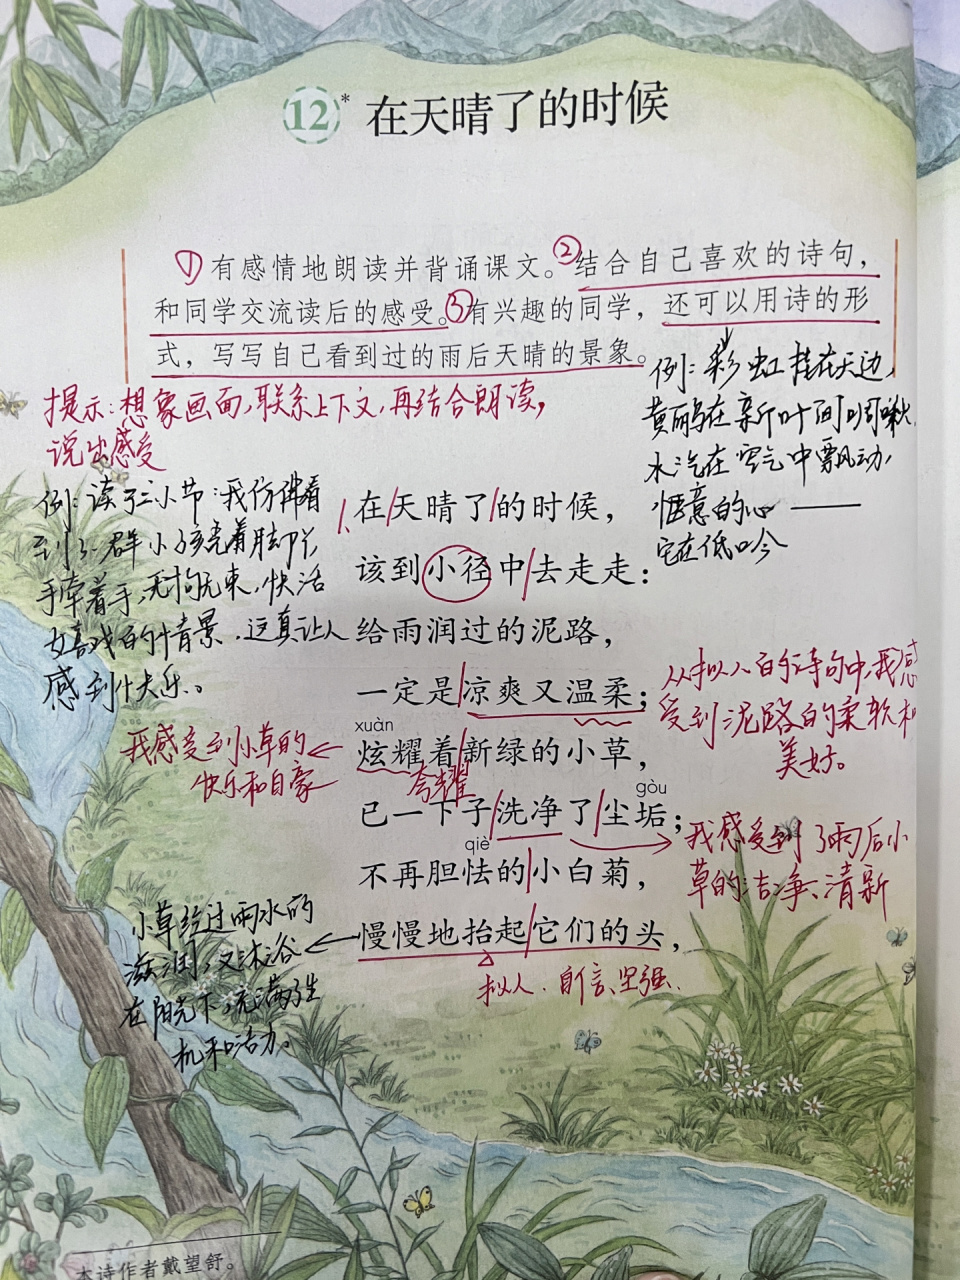 12* 在天晴了的时候
① 有感情地朗读并背诵课文。② 结合自己喜欢的诗句，
和同学交流读后的感受。③ 有兴趣的同学，还可以用诗的形
式，写写自己看到过的雨后天晴的景象。
提示：想象画面，联系上下文，再结合朗读，
说出感受
例：彩虹挂在天边，
黄鹂鸟在新叶间啁啾，
水汽在空气中飘动，
惬意的心 ——
它在低吟
例：读了二小节：我仿佛看
到了一群小孩光着脚丫，
手牵着手，无拘无束，快活
嬉戏的情景，这真让人
感到快乐。
1、在/天晴了/的时候，
该到小径中/去走走：
给雨润过的泥路，
一定是/凉爽又温柔；
从拟人的诗句中，我感
受到泥路的柔软和
美好。
xuàn
炫耀着/新绿的小草，
夸耀
我感受到小草的
快乐和自豪
gòu
已一下子/洗净了/尘垢；
我感受到了雨后小
草的洁净、清新
qiè
不再胆怯的/小白菊，
慢慢地抬起/它们的头，
拟人 自信、坚强
小草经过雨水的
滋润，又沐浴
在阳光下，充满了生
机和活力。
本诗作者戴望舒。